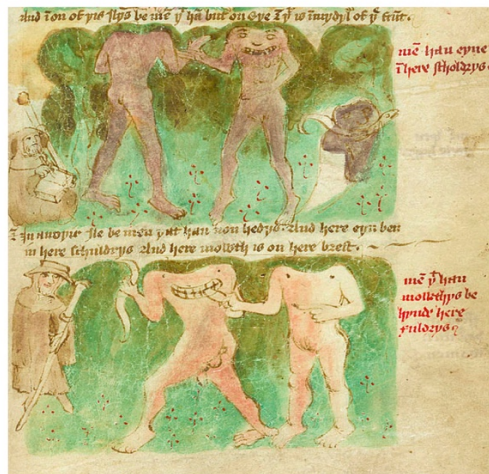 and Ion of þis flys be mē þᵗ hā but on eye & þᵗ is ī mydyl of þᵉ frūt.
mē han eyne
ī here scholdrys
In anoþir Ile be men þat han non hedys And here eyn ben
in here schuldrys And here mowth is on here brest.
mē þᵗ han
mowthys be
hynde here
schuldrys